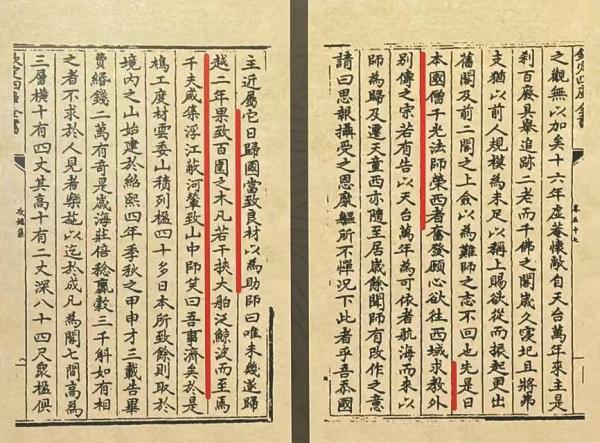 欽定四庫全書
之觀無以加矣十六年虛菴懷敞自天台萬年來主是
刹百廢具舉追跡二老而千佛之閣歲久寖圮且將弗
支猶以前人規模為未足以稱上賜欲從而振起更出
舊閣及前二閣之上僉以為難師之志不回也先是日
本國僧千光法師榮西者奮發願心欲往西域求教外
别傳之宗若有告以天台萬年為可依者航海而來以
師為歸及遷天童西亦隨至居歲餘聞師有改作之意
請曰思報攝受之恩糜軀所不憚況下此者乎吾忝國
卷五十七
主近屬它日歸國當致良材以為助師曰唯未幾遂歸
越二年果致百圍之木凡若干挾大舶泛鯨波而至焉
千夫咸集浮江蔽河輦致山中師笑曰吾事濟矣於是
鳩工度材雲委山積列楹四十多日本所致餘則取於
境内之山始建於紹熙四年季秋之甲申才三載告畢
費緡錢二萬有奇是歲海莊倍稔贏穀三千斛如有相
之者不求於人見者樂施以迄於成凡為閣七間高為
三層横十有四丈其高十有二丈深八十四尺衆楹俱
欽定四庫全書
攻媿集